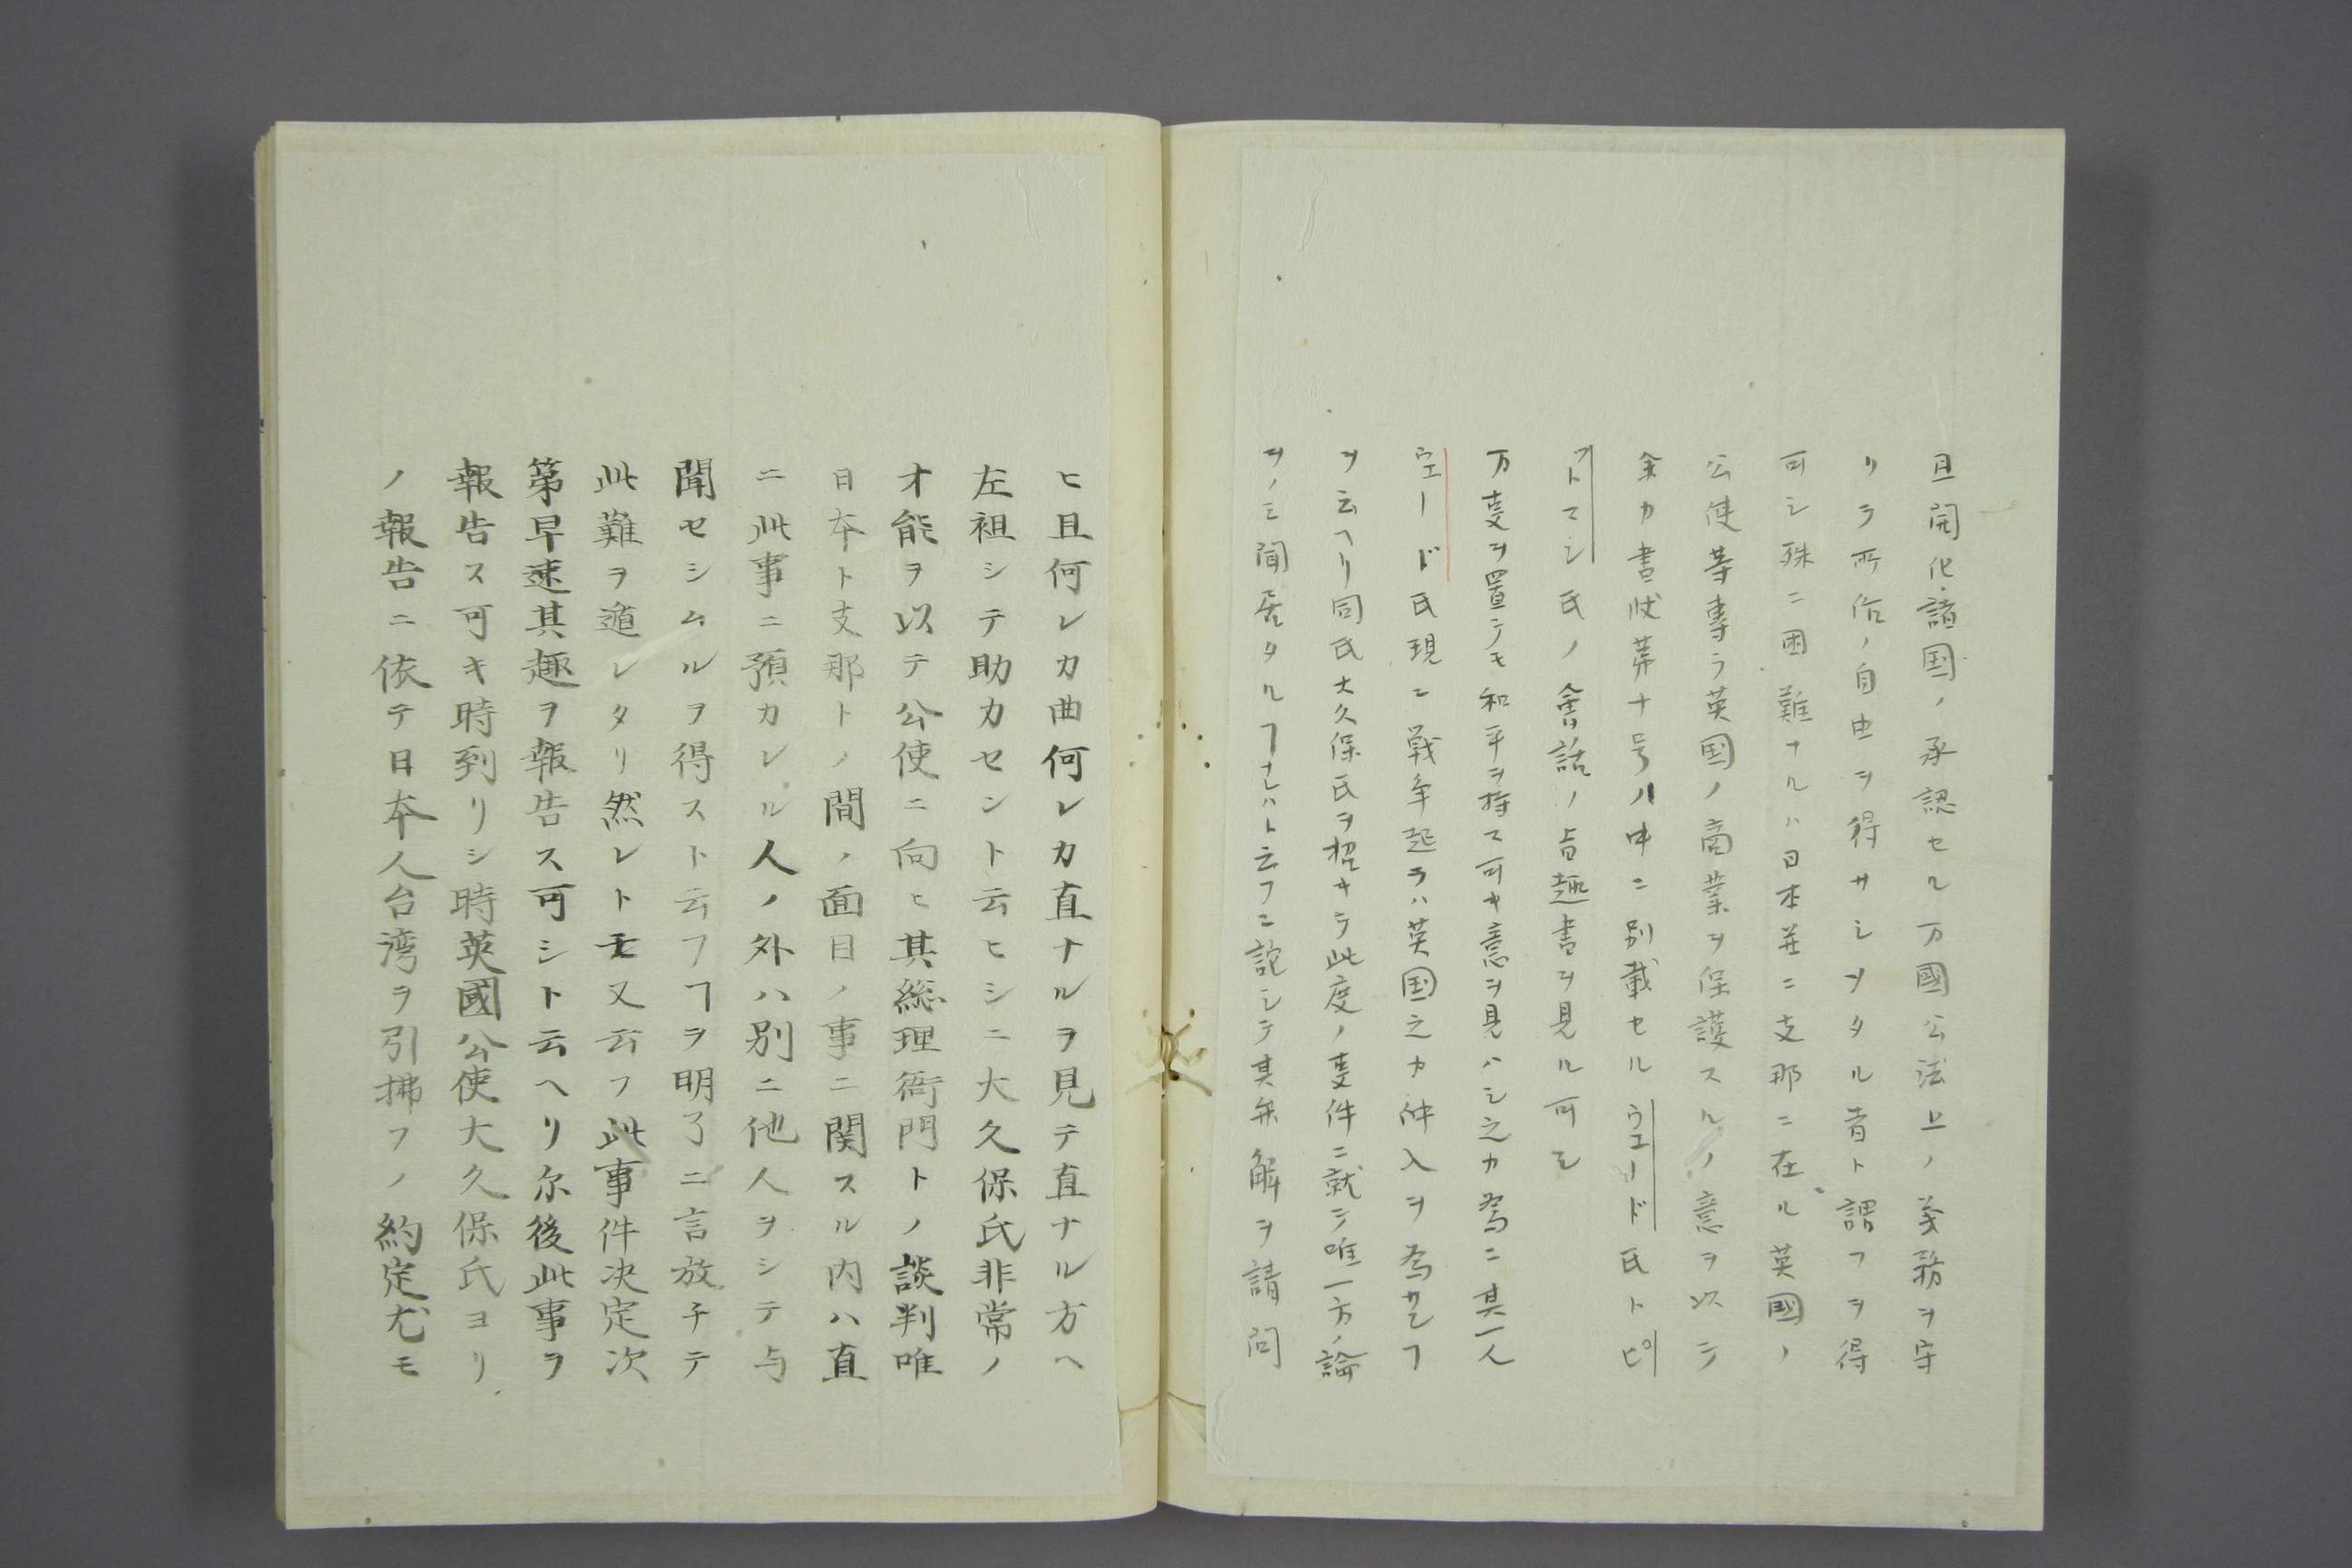 且開化諸国ノ承認セル万國公法上ノ義務ヲ守
リテ所俗ノ自由ヲ得サシメタル者ト謂フヲ得
可シ殊ニ困難ナルハ日本並ニ支那ニ在ル英國ノ
公使等専ラ英国ノ商業ヲ保護スルノ意ヲ以テ
余カ書状第十号ノ中ニ別載セルウエード氏トピ
ットマン氏ノ會話ノ旨趣書ヲ見ル可シ
万事ヲ置テモ和平ヲ持ス可キ意ヲ見ハシ之カ為ニ其一人
ウエード氏現ニ戦争起ラハ英国之カ仲入ヲ為サンヿ
ヲ云ヘリ同氏大久保氏ヲ招キテ此度ノ事件ニ就テ唯一方ノ論
ヲノミ聞居タルヿナレハト云フニ託シテ其弁解ヲ請問
ヒ且何レカ曲何レカ直ナルヲ見テ直ナル方ヘ
左袒シテ助力セント云ヒシニ大久保氏非常ノ
才能ヲ以テ公使ニ向ヒ其総理衙門トノ談判唯
日本ト支那トノ間ノ面目ノ事ニ関スル内ハ直
ニ此事ニ預カレル人ノ外ハ別ニ他人ヲシテ与
聞セシムルヲ得スト云フヿヲ明了ニ言放チテ
此難ヲ遁レタリ然レト𪜈又云フ此事件决定次
第早速其趣ヲ報告ス可シト云ヘリ尓後此事ヲ
報告ス可キ時到リシ時英國公使大久保氏ヨリ
ノ報告ニ依テ日本人台湾ヲ引拂フノ約定尤モ